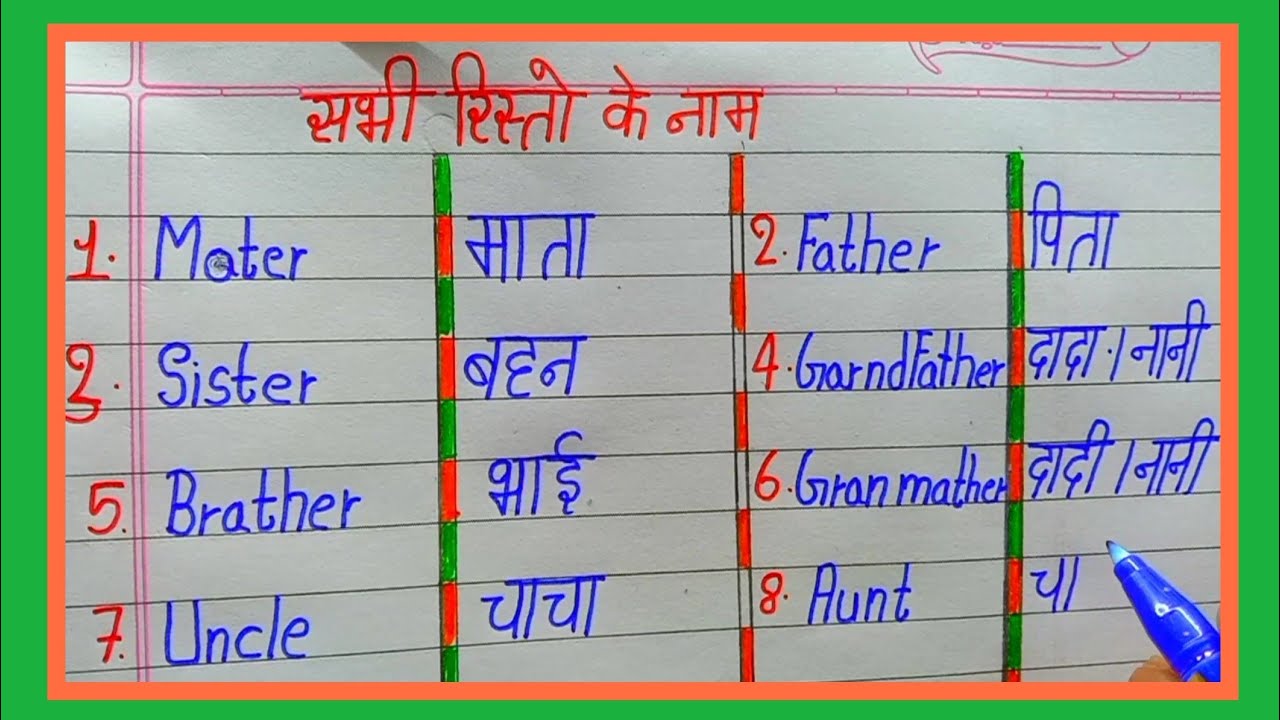 सभी रिस्तो के नाम
1. Mater माता 2. Father पिता
3. Sister बहन 4. GarndFather दादा.। नानी
5. Brather भाई 6. Gran mather दादी । नानी
7. Uncle चाचा 8. Aunt चा